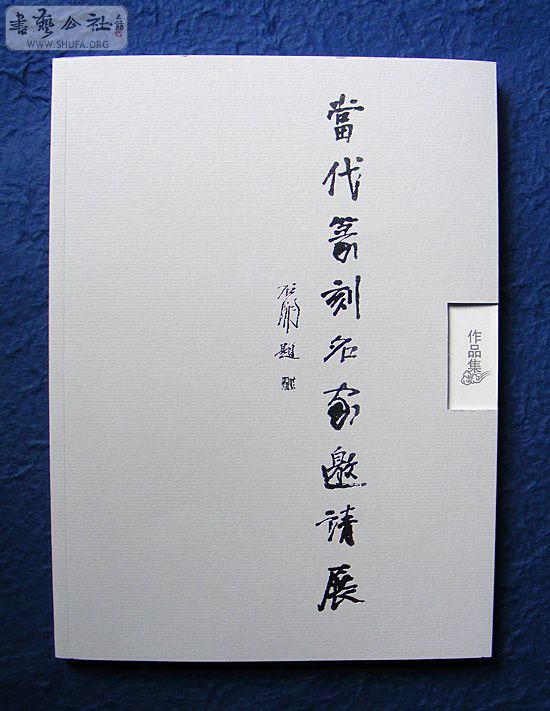 書藝公社
WWW.SHUFA.ORG
當代篆刻名家邀請展
石開題
作品集